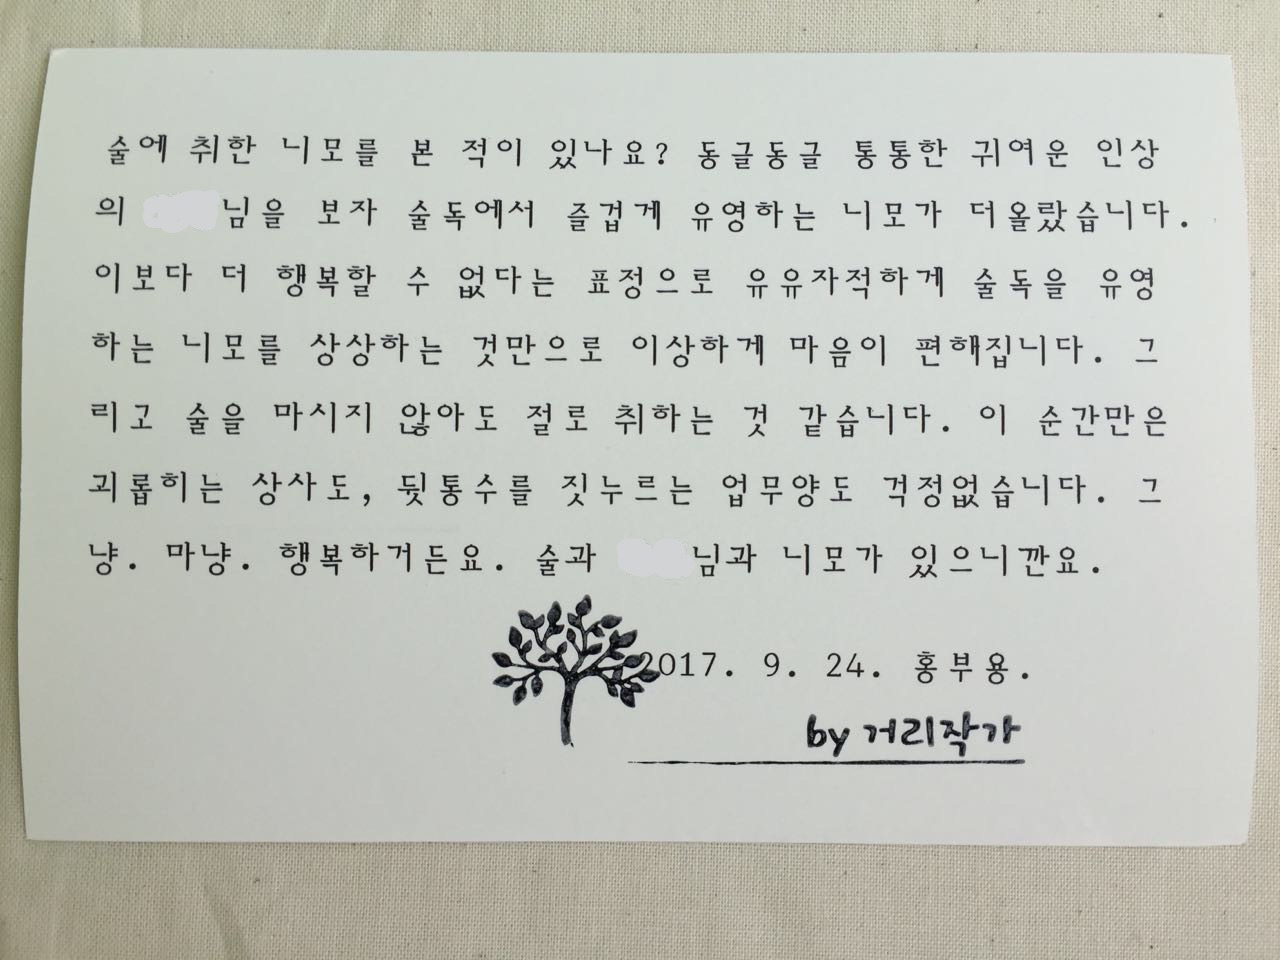 술에 취한 니모를 본 적이 있나요? 동글동글 통통한 귀여운 인상
의 님을 보자 술독에서 즐겁게 유영하는 니모가 더올랐습니다.
이보다 더 행복할 수 없다는 표정으로 유유자적하게 술독을 유영
하는 니모를 상상하는 것만으로 이상하게 마음이 편해집니다. 그
리고 술을 마시지 않아도 절로 취하는 것 같습니다. 이 순간만은
괴롭히는 상사도, 뒷통수를 짓누르는 업무양도 걱정없습니다. 그
냥. 마냥. 행복하거든요. 술과 님과 니모가 있으니깐요.
2017. 9. 24. 홍부용.
by 거리작가